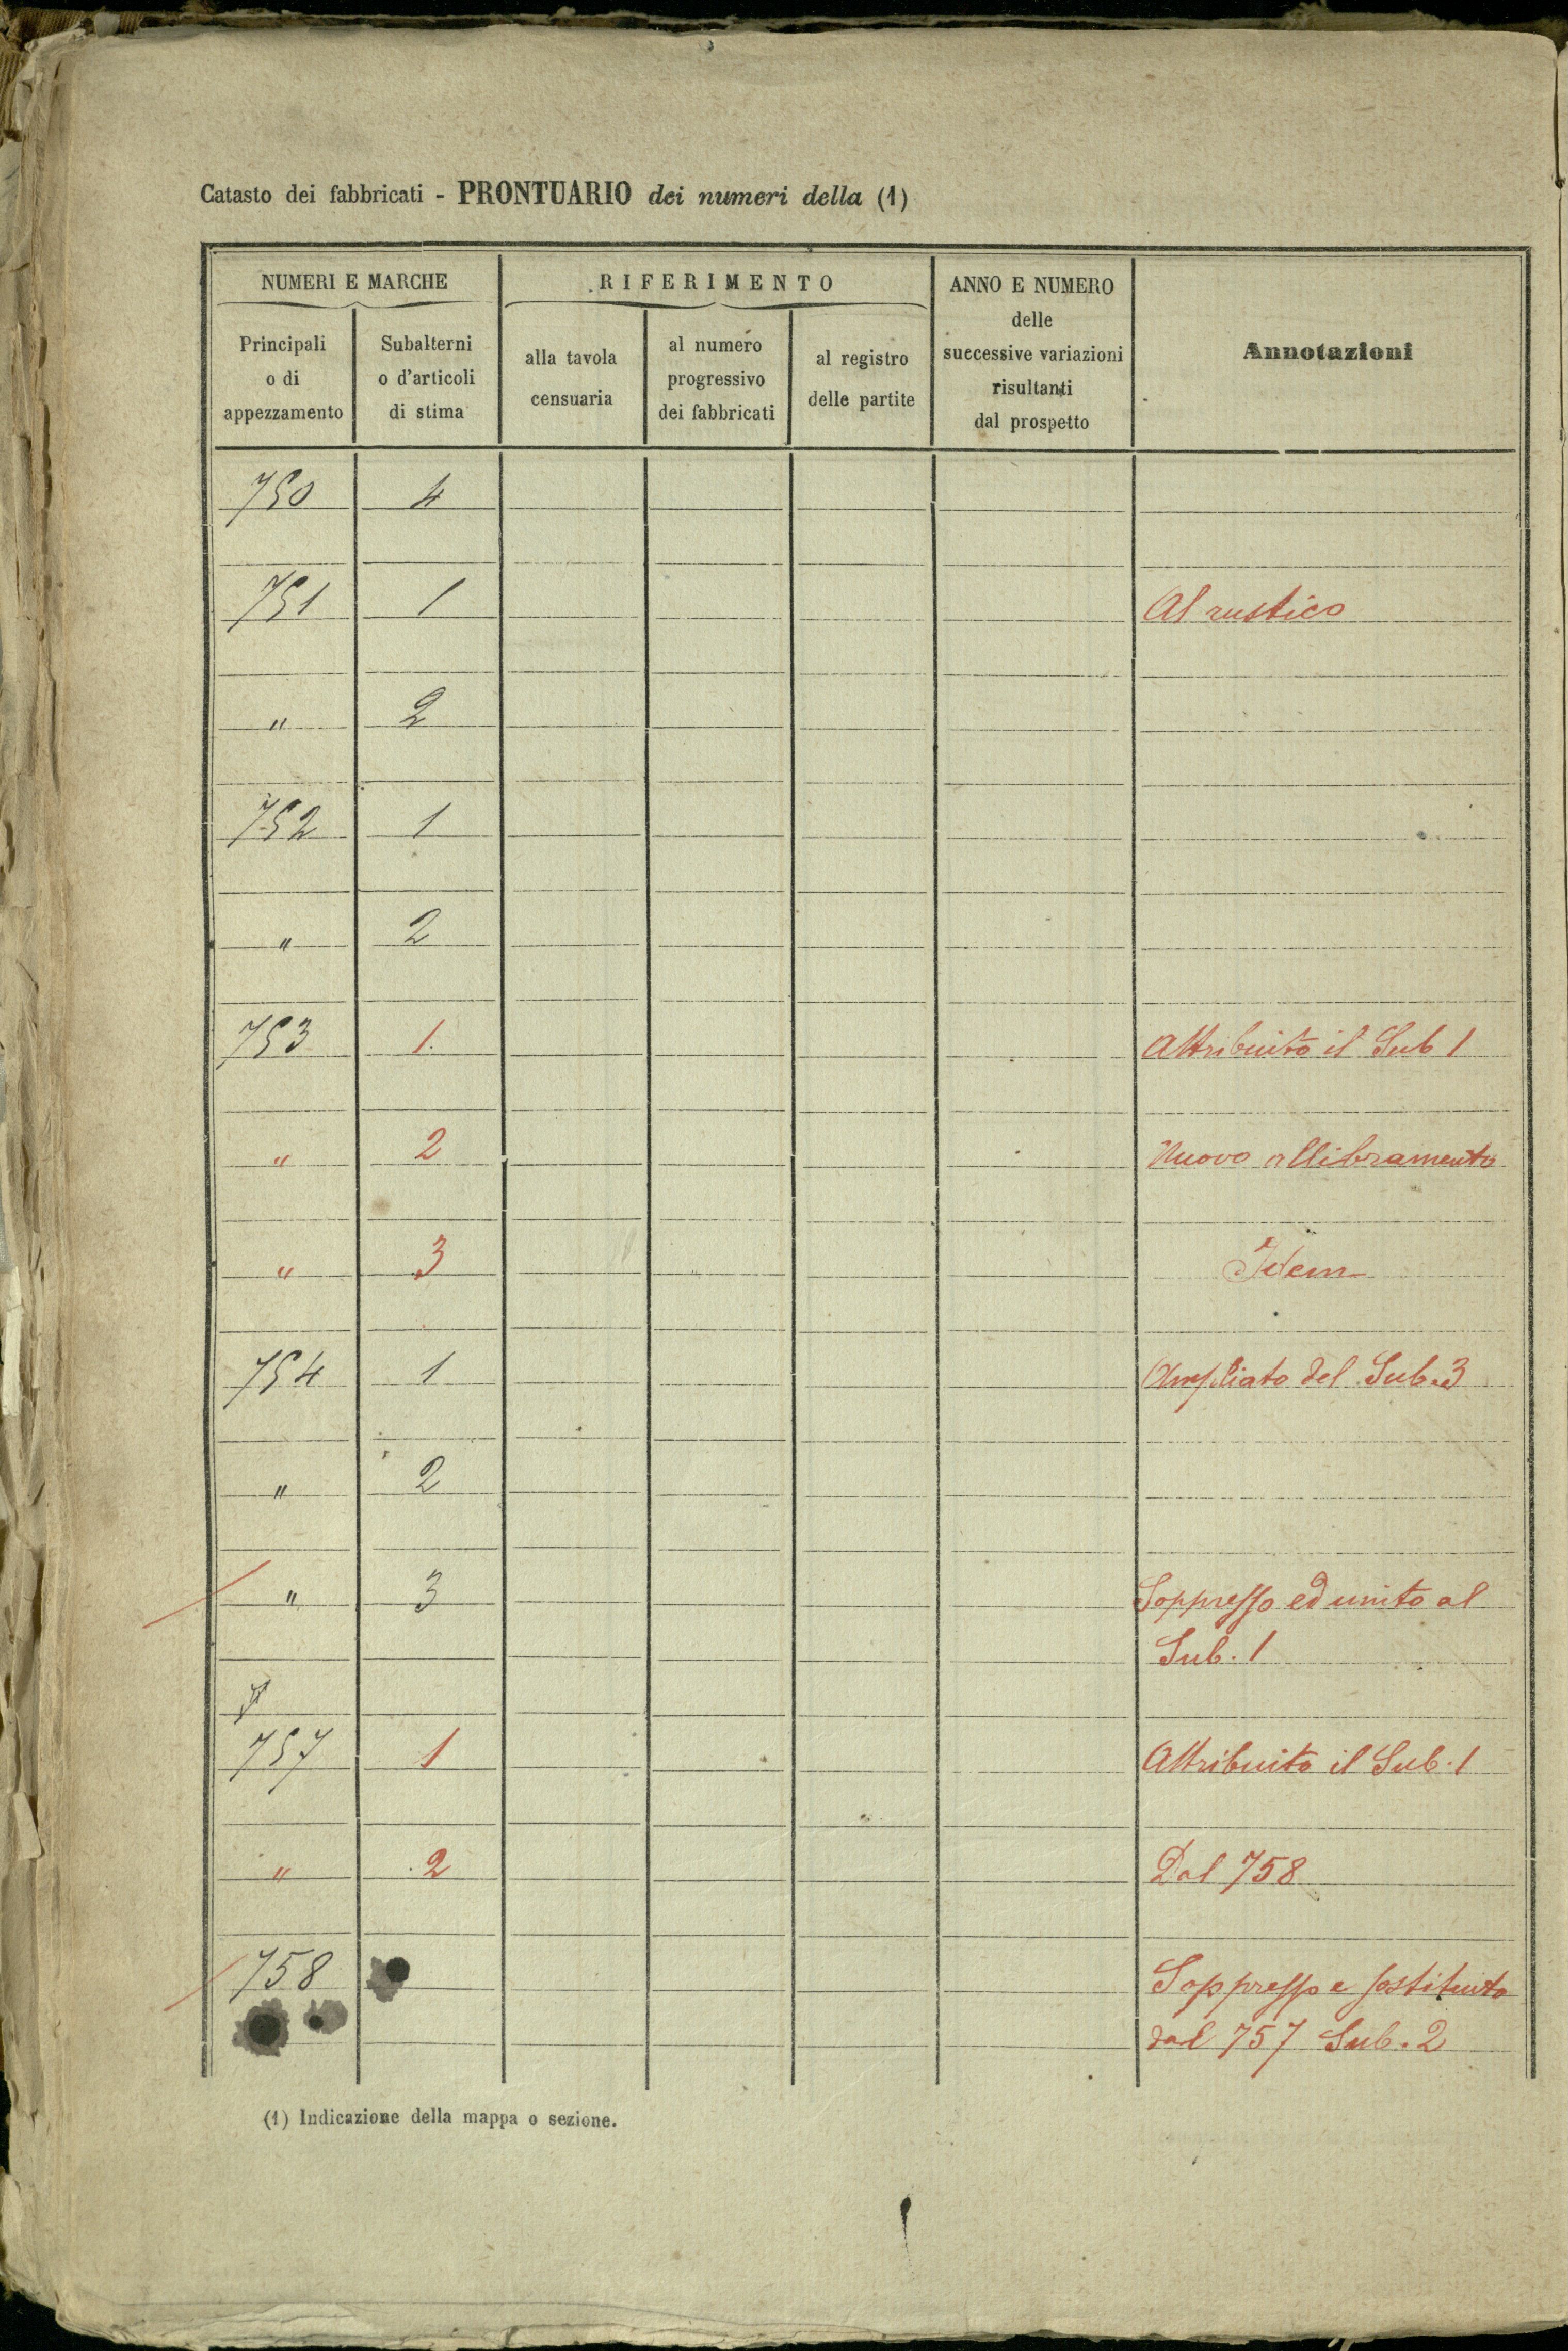 Catasto dei fabbricati - PRONTUARIO dei numeri della (1)
NUMERI E MARCHE
RIFERIMENTO
ANNO E NUMERO
delle
successive variazioni
risultanti
dal prospetto
Annotazioni
Principali
o di
appezzamento
Subalterni
o d'articoli
di stima
alla tavola
censuaria
al numero
progressivo
dei fabbricati
al registro
delle partite
750 4
751 1 Al rustico
" 2
752 1
" 2
753 1. Attribuito il Sub 1
" 2 Nuovo allibramento
" 3 Idem
754 1 Ampliato del Sub. 3
" 2
" 3 Soppresso ed unito al
Sub. 1
757 1 Attribuito il Sub. 1
" 2 Dal 758
758 Soppresso e sostituito
dal 757 Sub. 2
(1) Indicazione della mappa o sezione.